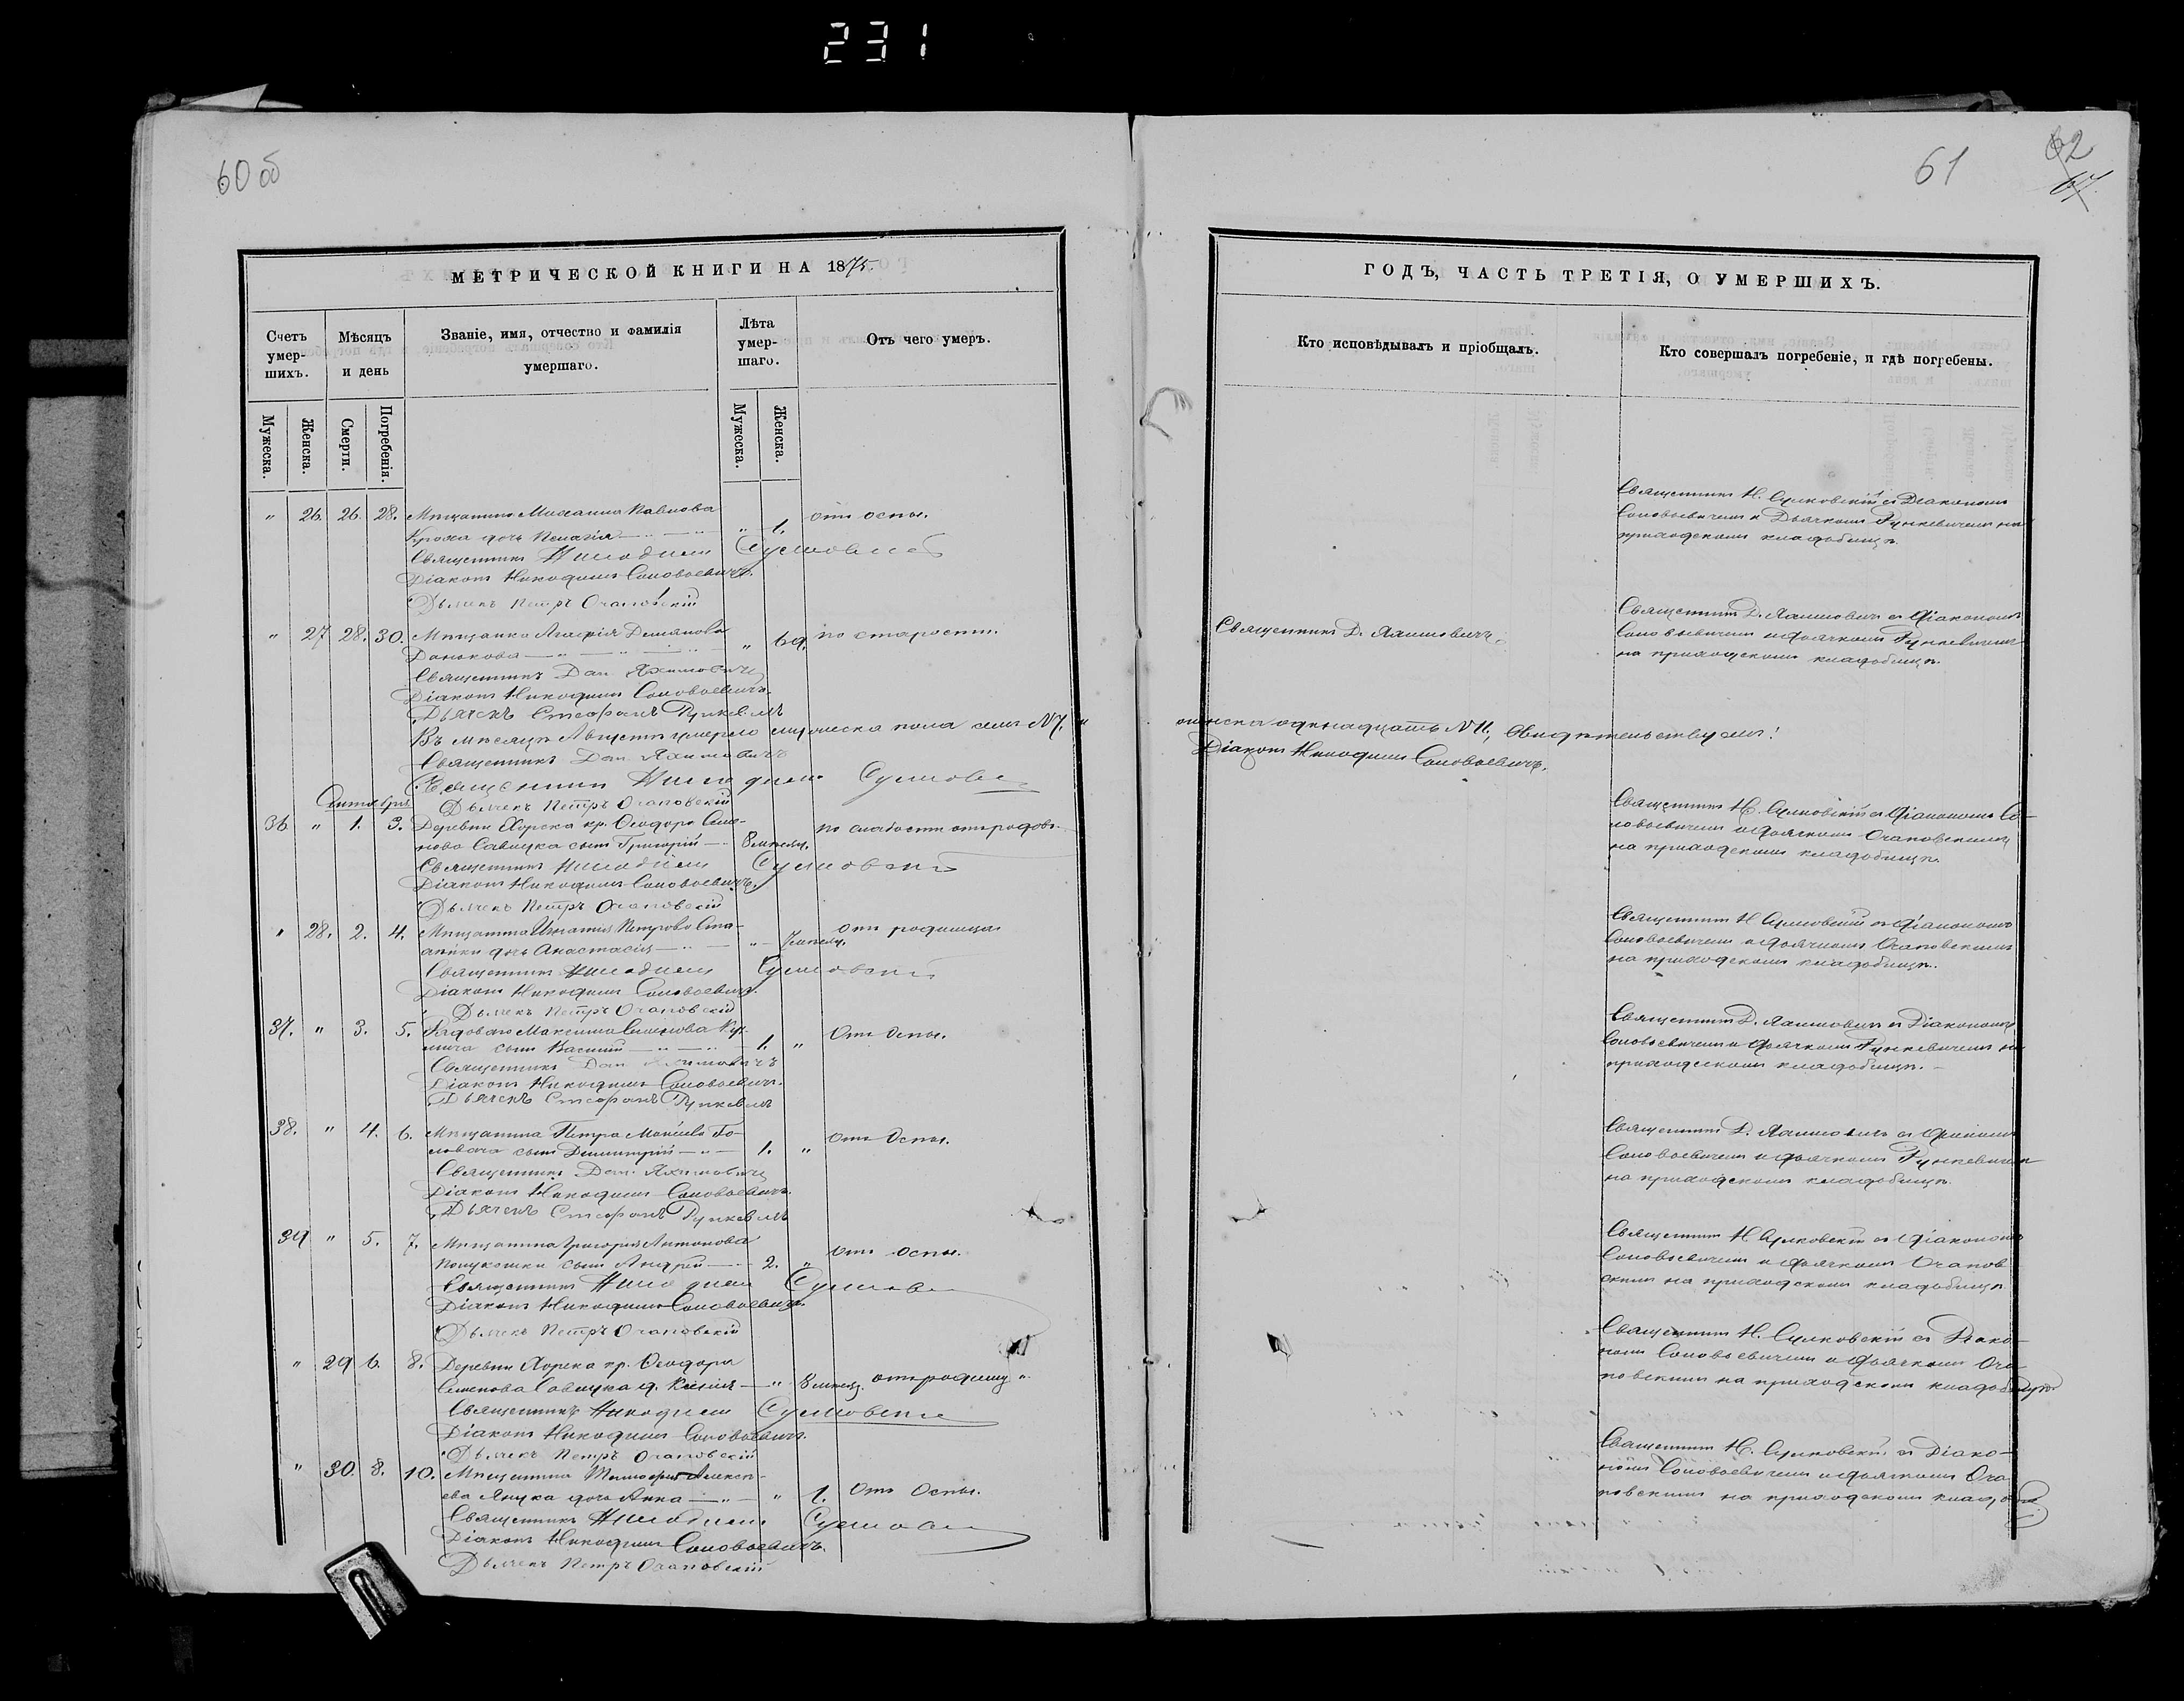 231
60 об
МЕТРИЧЕСКОЙ КНИГИ НА 1875.
Счетъ умер-шихъ.
Мѣсяцъ и день
Званіе, имя, отчество и фамилія умершаго.
Лѣта умер-шаго.
Отъ чего умеръ.
Мужеска.
Женска.
Смерти.
Погребенія.
Мужеска.
Женска.
" 26. 26. 28. Мѣщанина Михаила Павлова
дочь Пелагія " 1. отъ оспы.
Священникъ Никодимъ
Діаконъ Никодимъ Соловьевичъ.
Дьячекъ Петръ Очаповскій
" 27 28. 30. Мѣщанка Агафія Демьянова
Данькова " 69. по старости.
Священникъ Дан. Яхимовичъ
Діаконъ Никодимъ Соловьевичъ.
Дьячекъ Стефанъ Рункевичъ
Въ мѣсяцѣ Августѣ умерло мужеска пола семь №7. "
Священникъ Дан. Яхимовичъ
Священникъ Никодимъ
Дьячекъ Петръ Очаповскій
Сентябрь
36 " 1. 3. Деревни Хорска кр. Ѳеодора Семе-
нова Савицка сынъ Григорій 8 мѣсяц. по слабости отъ родовъ.
Священникъ Никодимъ
Діаконъ Никодимъ Соловьевичъ.
Дьячекъ Петръ Очаповскій
" 28. 2. 4. Мѣщанина Игнатія Петрова
дочь Анастасія " отъ родимца
Священникъ Никодимъ
Діаконъ Никодимъ Соловьевичъ.
Дьячекъ Петръ Очаповскій
37. " 3. 5. Рядоваго Максима Семенова
сынъ Василій 1. " Отъ Оспы.
Священникъ Дан. Яхимовичъ
Діаконъ Никодимъ Соловьевичъ.
Дьячекъ Стефанъ Рункевичъ
38. " 4. 6. Мѣщанина Петра Го-
ловача сынъ Димитрій 1. " Отъ Оспы.
Священникъ Дан. Яхимовичъ
Діаконъ Никодимъ Соловьевичъ.
Дьячекъ Стефанъ Рункевичъ
39 " 5. 7. Мѣщанина Григорія Антонова
сынъ Андрей 2. " отъ оспы.
Священникъ Никодимъ
Діаконъ Никодимъ Соловьевичъ.
Дьячекъ Петръ Очаповскій
" 29 6. 8. Деревни Хорска кр. Ѳеодора
Семенова Савицка д. " 8 мѣсяц.
Священникъ Никодимъ
Діаконъ Никодимъ Соловьевичъ.
Дьячекъ Петръ Очаповскій
" 30. 8. 10. Мѣщанина Тимофея Алексѣ-
ева Яцука дочь Анна " 1. Отъ Оспы.
Священникъ Никодимъ
Діаконъ Никодимъ Соловьевичъ.
Дьячекъ Петръ Очаповскій
61
62
ГОДЪ, ЧАСТЬ ТРЕТІЯ, О УМЕРШИХЪ.
Кто исповѣдывалъ и пріобщалъ.
Кто совершалъ погребеніе, и гдѣ погребены.
Священникъ Н. Сулковскій съ Діакономъ
Соловьевичемъ и Дьячкомъ Рункевичемъ на
приходскомъ кладбищѣ.
Священникъ Д. Яхимовичъ.
Священникъ Д. Яхимовичъ съ Діакономъ
Соловьевичемъ и дьячкомъ Рункевичемъ
на приходскомъ кладбищѣ.
женска одинадцать №11., Свидѣтельствуемъ!
Діаконъ Никодимъ Соловьевичъ.
Священникъ Н. Сулковскій съ Діакономъ Со-
ловьевичемъ и дьячкомъ Очаповскимъ
на приходскомъ кладбищѣ.
Священникъ Н Сулковскій съ Діакономъ
Соловьевичемъ и дьячкомъ Очаповскимъ
на приходскомъ кладбищѣ.
Священникъ Д. Яхимовичъ съ Діакономъ
Соловьевичемъ и дьячкомъ Рункевичемъ на
приходскомъ кладбищѣ.
Священникъ Д. Яхимовичъ съ Діакономъ
Соловьевичемъ и дьячкомъ Рункевичемъ
на приходскомъ кладбищѣ.
Священникъ Н Сулковскій съ Діакономъ
Соловьевичемъ и дьячкомъ Очапов-
скимъ на приходскомъ кладбищѣ
Священникъ Н. Сулковскій съ Діако-
номъ Соловьевичемъ и дьячкомъ Оча-
повскимъ на приходскомъ кладбищѣ.
Священникъ Н. Сулковскій съ Діако-
номъ Соловьевичемъ и дьячкомъ Оча-
повскимъ на приходскомъ кладбищѣ.